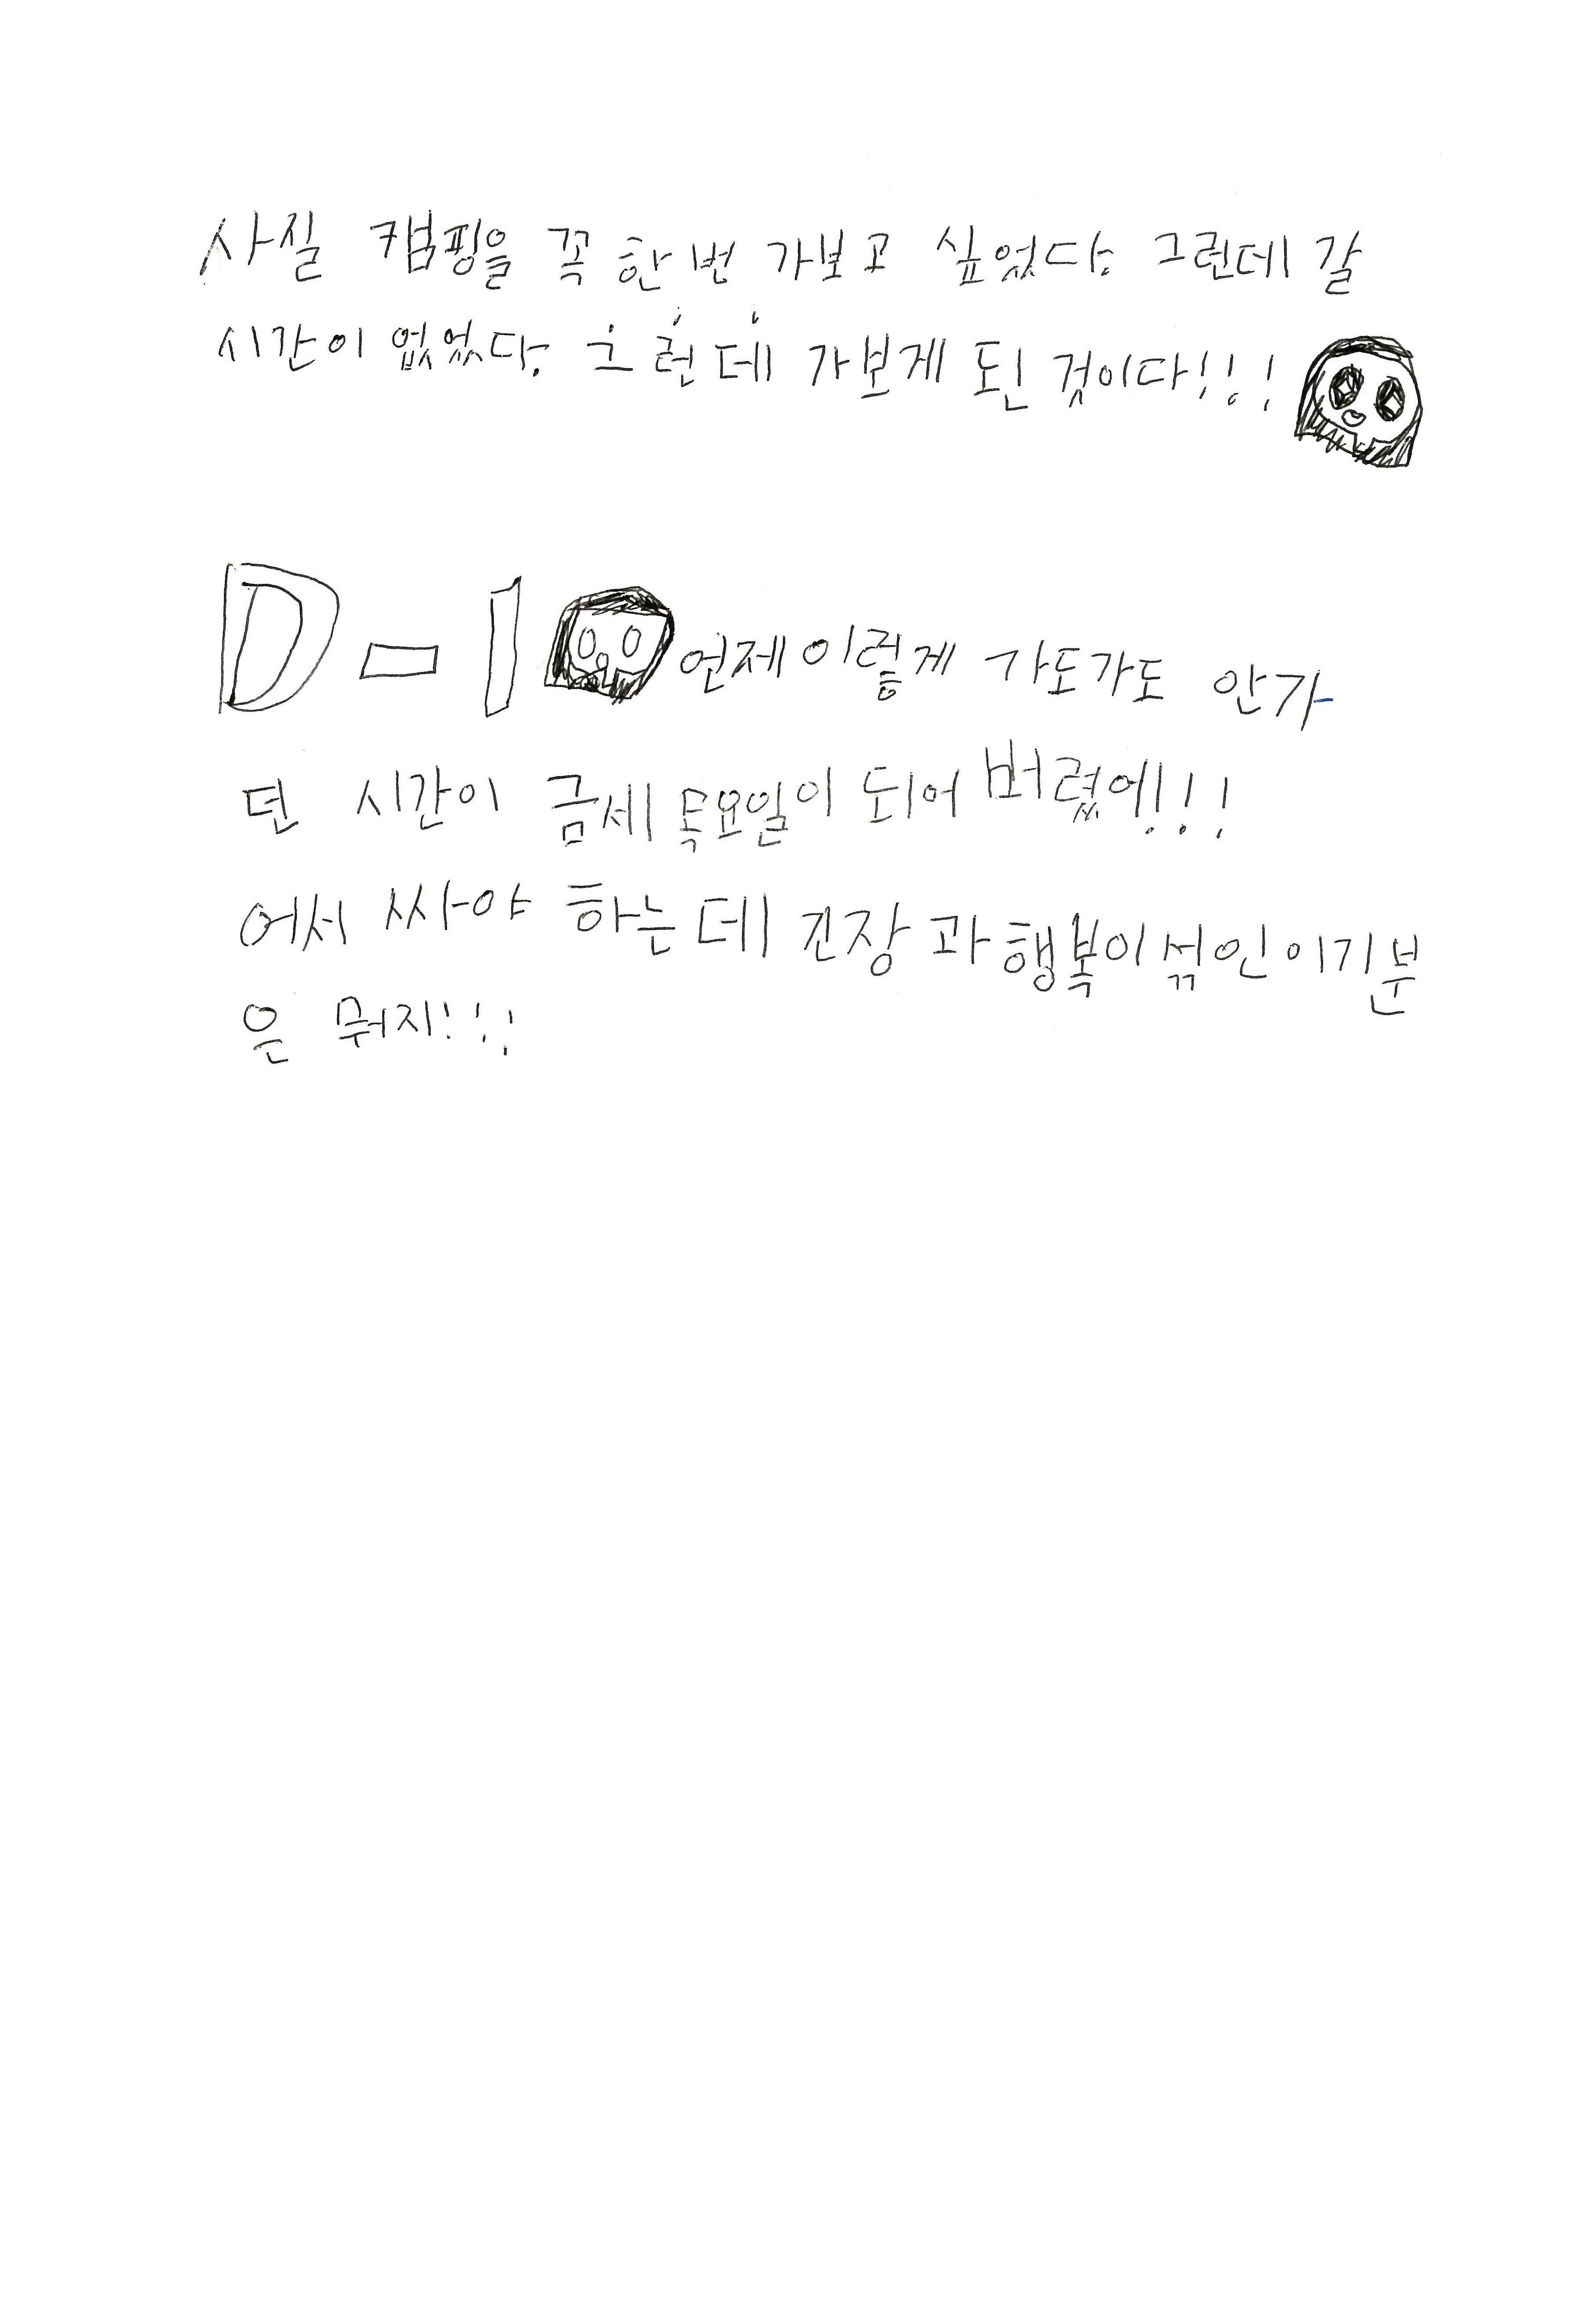 사실 캠핑을 꼭 한번 가보고 싶었다. 그런데 갈
시간이 없었다. 그런데 가보게 된 것이다!!!
D-1 언제이렇게 가도가도 안가
던 시간이 금세 목요일이 되어 버렸어!!!
어서 싸야 하는데 긴장과 행복이 섞인 이기분
은 뭐지!!!